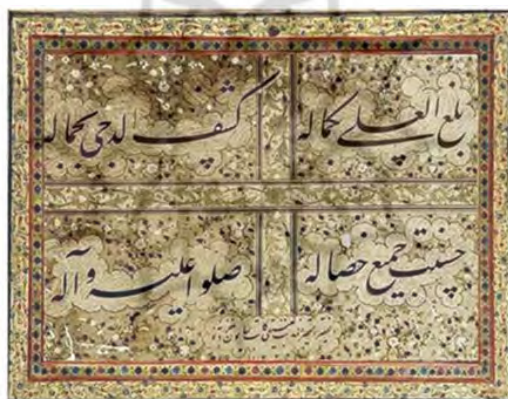 بلغ العلی بکماله
کشف الدجی بجماله
حسنت جمیع خصاله
صلوا علیه وآله